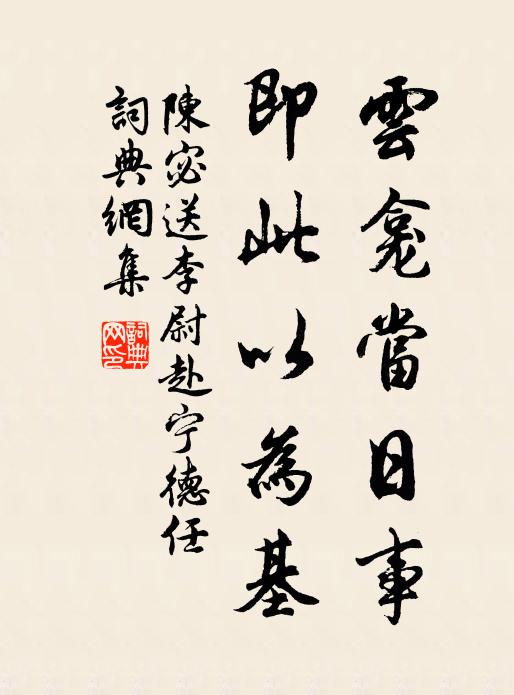 雲龕當日事
即此以為基
陳宓送李尉赴宁德任
詞典網集
詞典网印